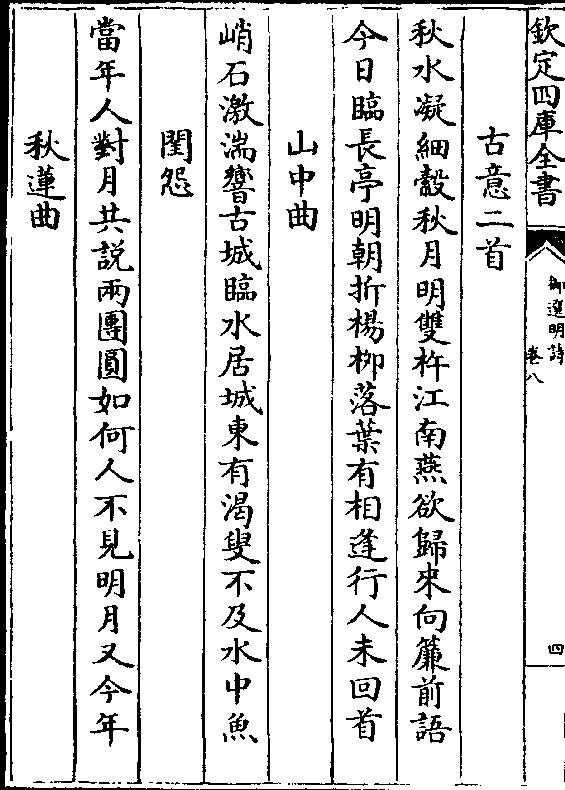 欽定四庫全書
御選明詩
卷八
四
古意二首
秋水凝細縠秋月明雙杵江南燕欲歸來向簾前語
今日臨長亭明朝折楊柳落葉有相逢行人未回首
山中曲
峭石激湍響古城臨水居城東有渴叟不及水中魚
閨怨
當年人對月共説兩團圓如何人不見明月又今年
秋蓮曲